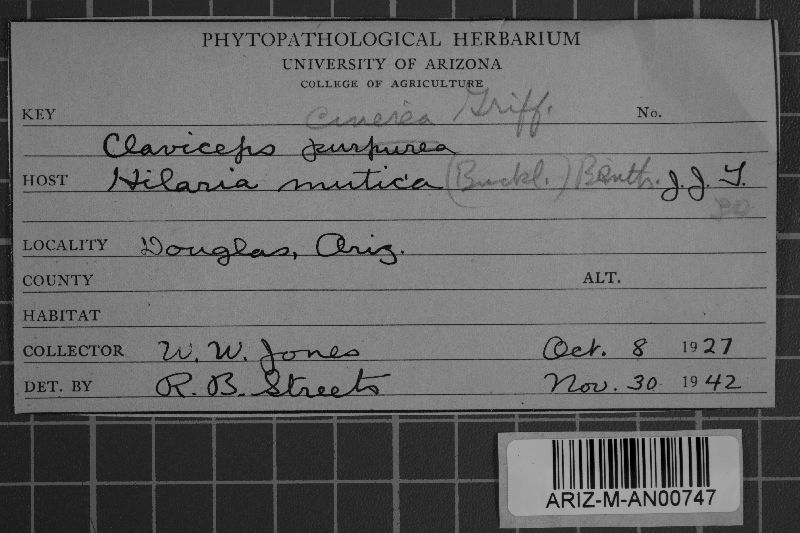 PHYTOPATHOLOGICAL HERBARIUM
UNIVERSITY OF ARIZONA
COLLEGE OF AGRICULTURE
KEY cinerea Griff. No.
Claviceps purpurea
HOST Hilaria mutica (Buckl.) Benth. J.J.T.
LOCALITY Douglas, Ariz.
COUNTY ALT.
HABITAT
COLLECTOR W. W. Jones Oct. 8 1927
DET. BY R. B. Streets Nov. 30 1942
ARIZ-M-AN00747